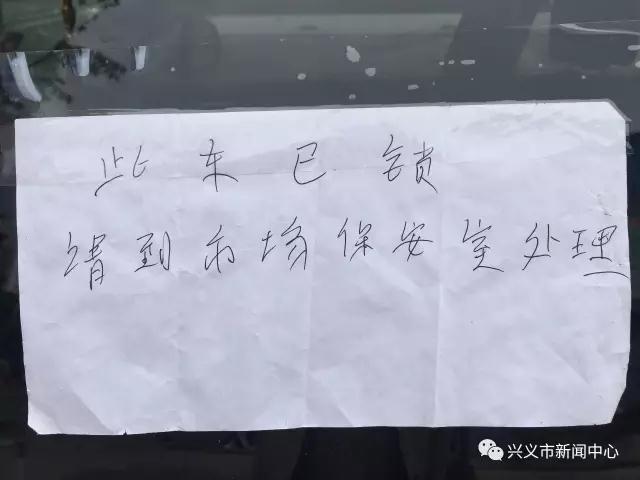 此车已锁
请到市场保安室处理
兴义市新闻中心